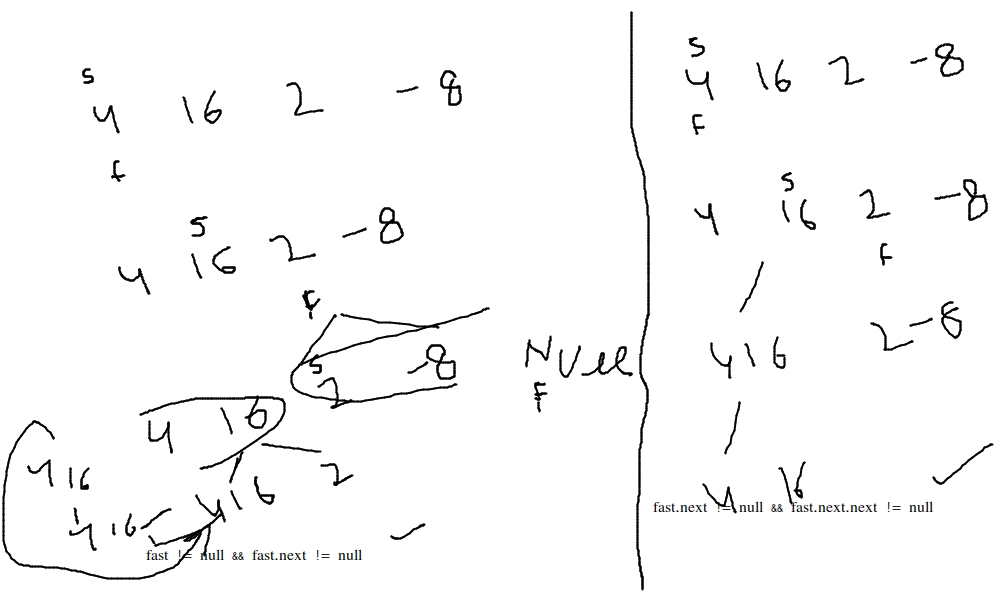 S
4 16 2 -8
F
S
4 16 2 -8
F
S
2 -8
Null
F
4 16
4 16
4 16 2
4 16
fast != null && fast.next != null
S
4 16 2 -8
F
S
4 16 2 -8
F
4 16 2 -8
4 16
fast.next != null && fast.next.next != null